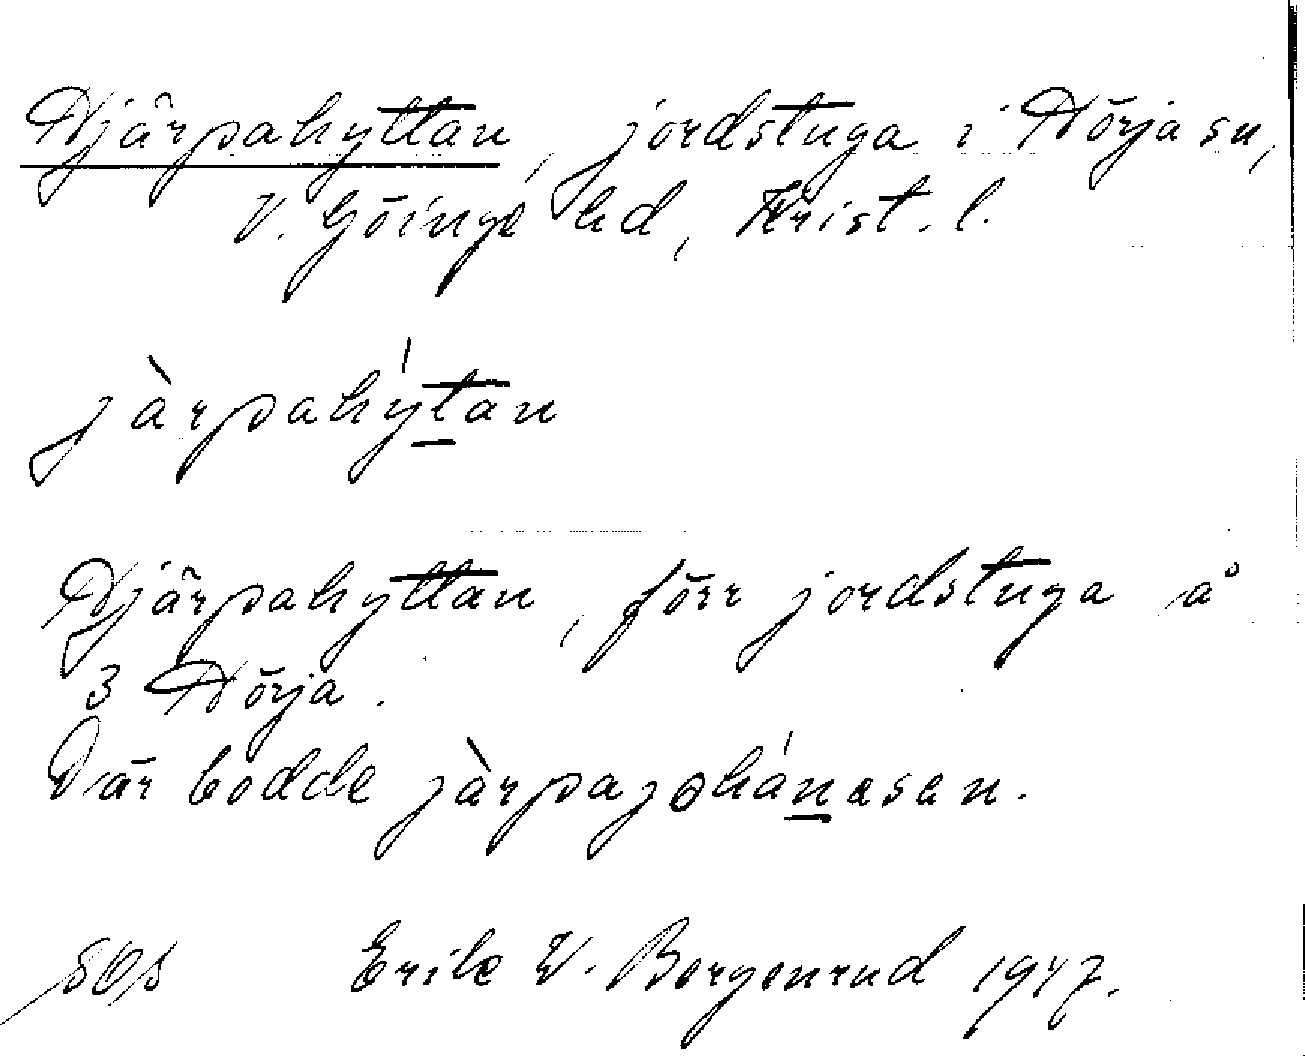 Hjärpahyttan, jordstuga i Hörja sn,
V. Göinge hd, Krist. l.
jàrpahýtan
Hjärpahyttan, förr jordstuga å
3 Hörja.
Där bodde jàrpajohánasen.
SOS Erik W. Bergenrud 1947.